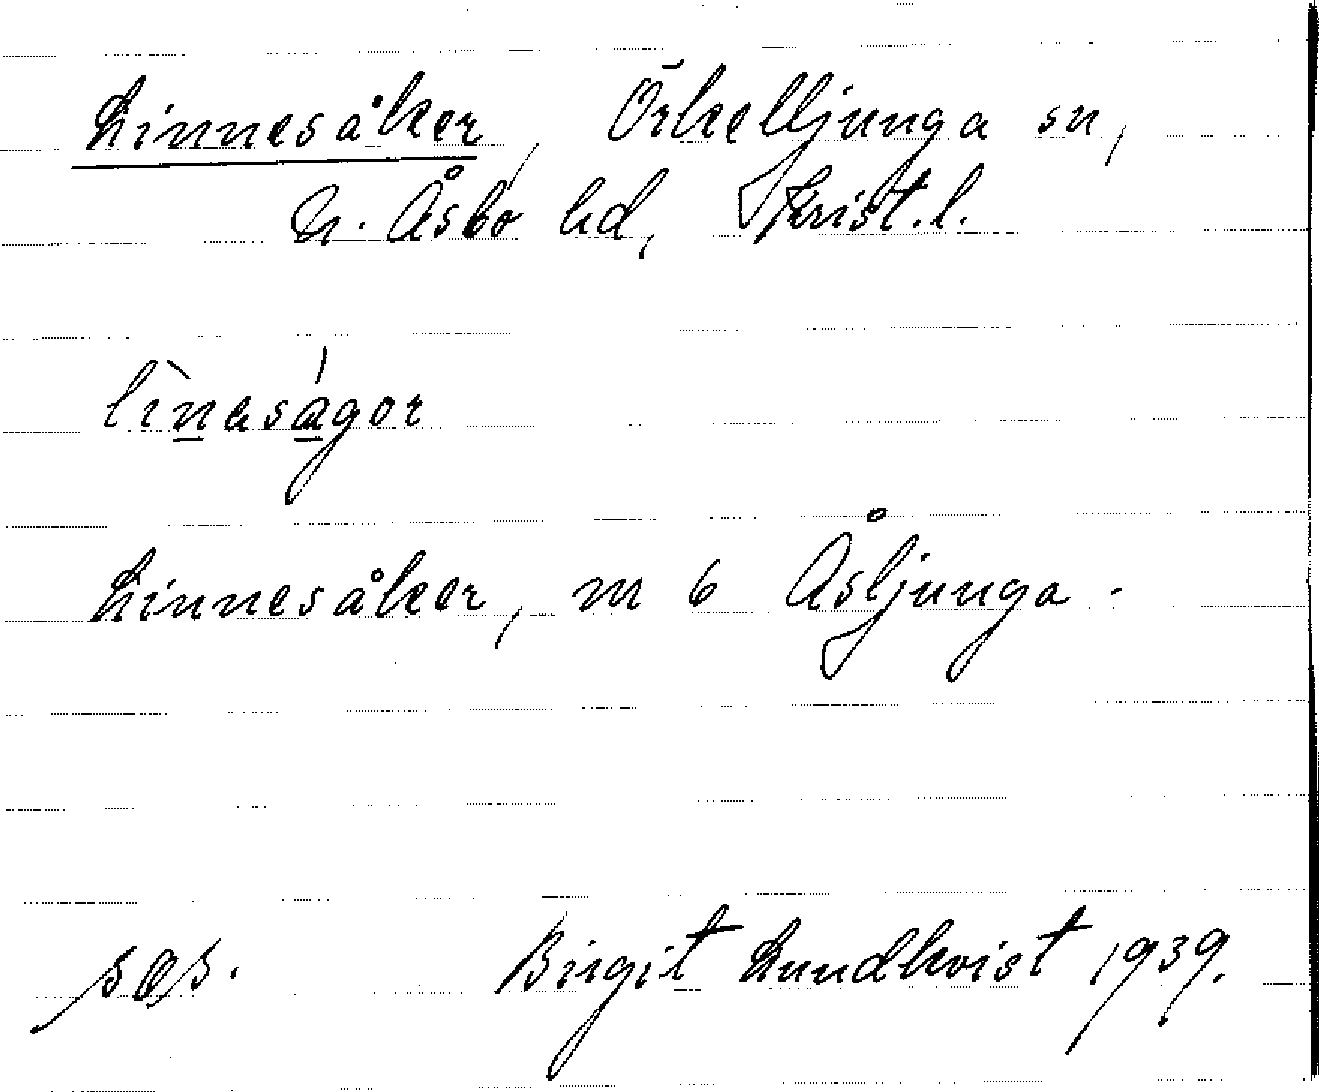 Linnesåker, Örkelljunga sn,
N. Åsbo hd, Krist.l.
lìneságor
Linnesåker, m 6 Åsljunga.
Birgit Lundkvist 1939.